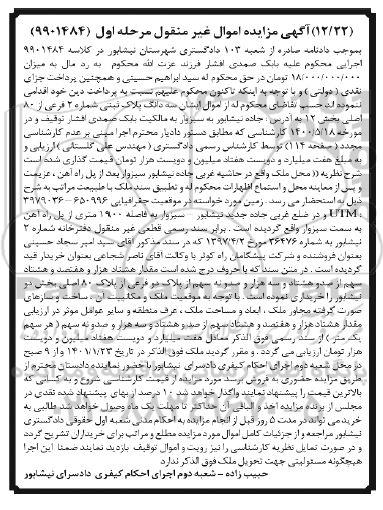 (۱۲/۲۲) آگهی مزایده اموال غیر منقول مرحله اول (۹۹۰۱۴۸۴)
بموجب دادنامه صادره از شعبه ۱۰۳ دادگستری شهرستان نیشابور در کلاسه ۹۹۰۱۴۸۴
اجرایی محکوم علیه بابک صمدی افشار فرزند عزت الله محکوم به رد مال به میزان
۱۸/۰۰۰/۰۰۰/۰۰۰ تومان در حق محکوم له سید ابراهیم حسینی و همچنین پرداخت جزای
نقدی (دولتی) و با توجه به اینکه تاکنون محکوم علیهم نسبت به پرداخت دین خود اقدامی
ننموده اند حسب تقاضای محکوم له از اموال ایشان سه دانگ پلاک ثبتی شماره ۲ فرعی از ۸۰
اصلی بخش ۱۲ به آدرس: جاده نیشابور به سبزوار به مالکیت بابک صمدی افشار توقیف و در
مورخه ۱۴۰۰/۵/۱۸ کارشناسی که مطابق دستور دادیار محترم اجرا مبنی بر عدم کارشناسی
مجدد (صفحه ۱۱۴) توسط کارشناس رسمی دادگستری (مهندس علی گلستانی) ارزیابی و
به مبلغ هفت میلیارد و دویست هفتاد میلیون و دویست هزار تومان قیمت گذاری شده است
شرح نظریه ((محل ملک واقع در حاشیه غربی جاده نیشابور سبزوار بعد از پل راه آهن، عزیمت
و پس از معاینه محل و استماع اظهارات محکوم له و تطبیق سند ملک با طبیعت مراتب به شرح
ذیل به استحضار می رسد. زمین مورد خواسته در موقعیت جغرافیایی ۶۵۰۹۹۶ - ۳۹۷۹۰۳۶
UTM: و در ضلع غربی جاده جدید نیشابور – سبزوار به فاصله ۱۹۰۰ متری از پل راه آهن
به سمت سبزوار واقع گردیده است. برابر سند رسمی قطعی غیر منقول دفترخانه شماره ۲
نیشابور به شماره ۳۶۴۷۶ مورخ ۱۳۹۷/۴/۲ که در سند مذکور آقای سید امیر سجاد حسینی
بعنوان فروشنده و شرکت پیشگامان راه کوثر با وکالت آقای ناصر شجاعی بعنوان خریدار قید
گردیده است. در متن سند که با حروف درج شده است مقدار هشتاد هزار و هفتصد و هشتاد
سهم از صد و هشتاد و سه هزار و صد و نه سهم از پلاک دو فرعی از پلاک ۸۰ اصلی بخش در
نیشابور را خریداری نموده است. با توجه به موقعیت ملک و مکانیت آن، ساخت و سازهای
صورت گرفته مجاور ملک، ابعاد و مساحت ملک، عرف منطقه و سایر عوامل موثر در ارزیابی
مقدار هشتاد هزار و هفتصد و هشتاد سهم از صد و هشتاد و سه هزار و صد و نه سهم (هر سهم
یک متر) از سند رسمی فوق الذکر معادل هفت میلیارد و دویست هفتاد میلیون و دویست
هزار تومان ارزیابی می گردد. و مقرر گردید ملک فوق الذکر در تاریخ ۱۴۰۱/۱/۲۳ و از ۹ صبح
در محل شعبه دوم اجرای احکام کیفری دادسرای نیشابور با حضور نماینده دادستان محترم از
طریق مزایده حضوری به فروش برسد مورد مزایده از قیمت کارشناسی شروع و به کسانی که
بالاترین قیمت را پیشنهاد نمایند واگذار خواهد شد. ۱۰ درصد از بهای پیشنهاد شده نقدی در
مجلس از برنده مزایده اخذ و الباقی آن حداکثر تا مهلت یک ماه وصول خواهد شد طالبی به
خرید می تواند در مدت ۵ روز قبل از انجام مزایده به احکام مدنی شعبه اول حقوقی دادگستری
نیشابور مراجعه و از جزئیات کامل اموال مورد مزایده مطلع و مراتب برای خریداران تشریح گردد
و در صورت تمایل نظریه کارشناسی را نیز رویت و اموال توقیف بازدید نمایند ضمنا این اجرا
هیچگونه مسئولیتی جهت تحویل ملک فوق الذکر ندارد
حبیب زاده – شعبه دوم اجرای احکام کیفری دادسرای نیشابور